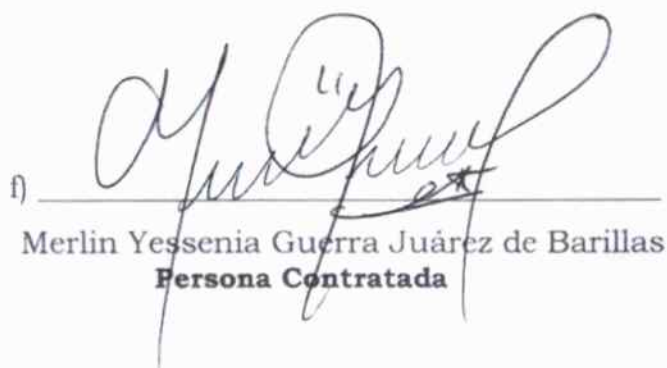 f)
Merlin Yessenia Guerra Juárez de Barillas
Persona Contratada